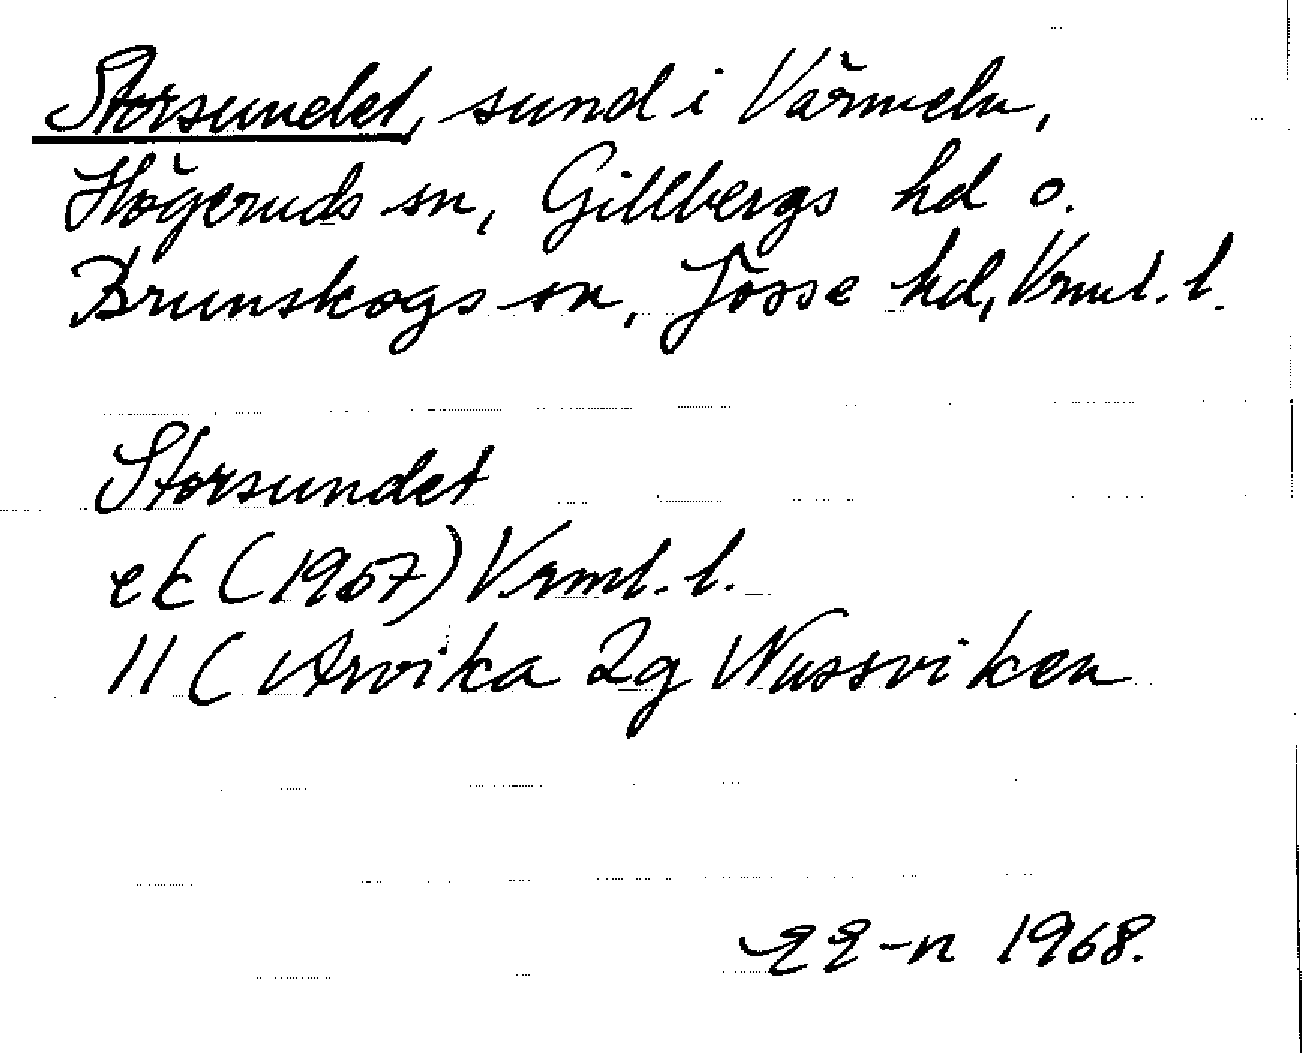 Storsundet, sund i Värmeln,
Högeruds sn, Gillbergs hd o.
Brunskogs sn, Jösse hd, Vrml. l.
Storsundet
ek (1957) Vrml. l.
11 C Arvika 2g Nussviken
EE-n 1968.